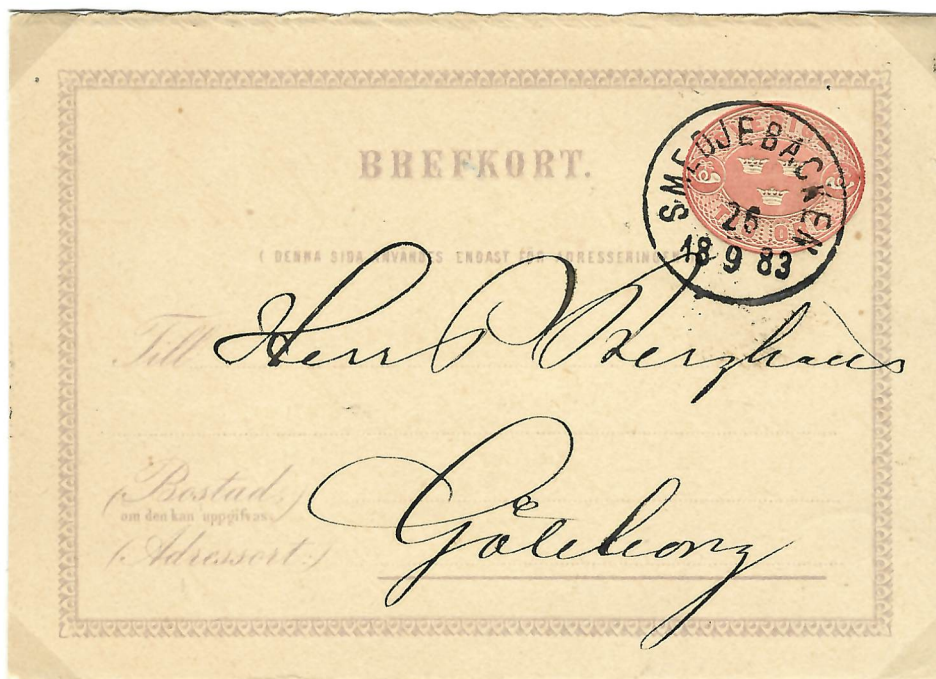 BREFKORT.
SMEDJEBACKEN
26
18 9 83
( DENNA SIDA ANVÄNDES ENDAST FÖR ADRESSERINGEN.)
Till Herr P Berghaus
(Bostad,)
om den kan uppgifvas.
Göteborg
(Adressort.)